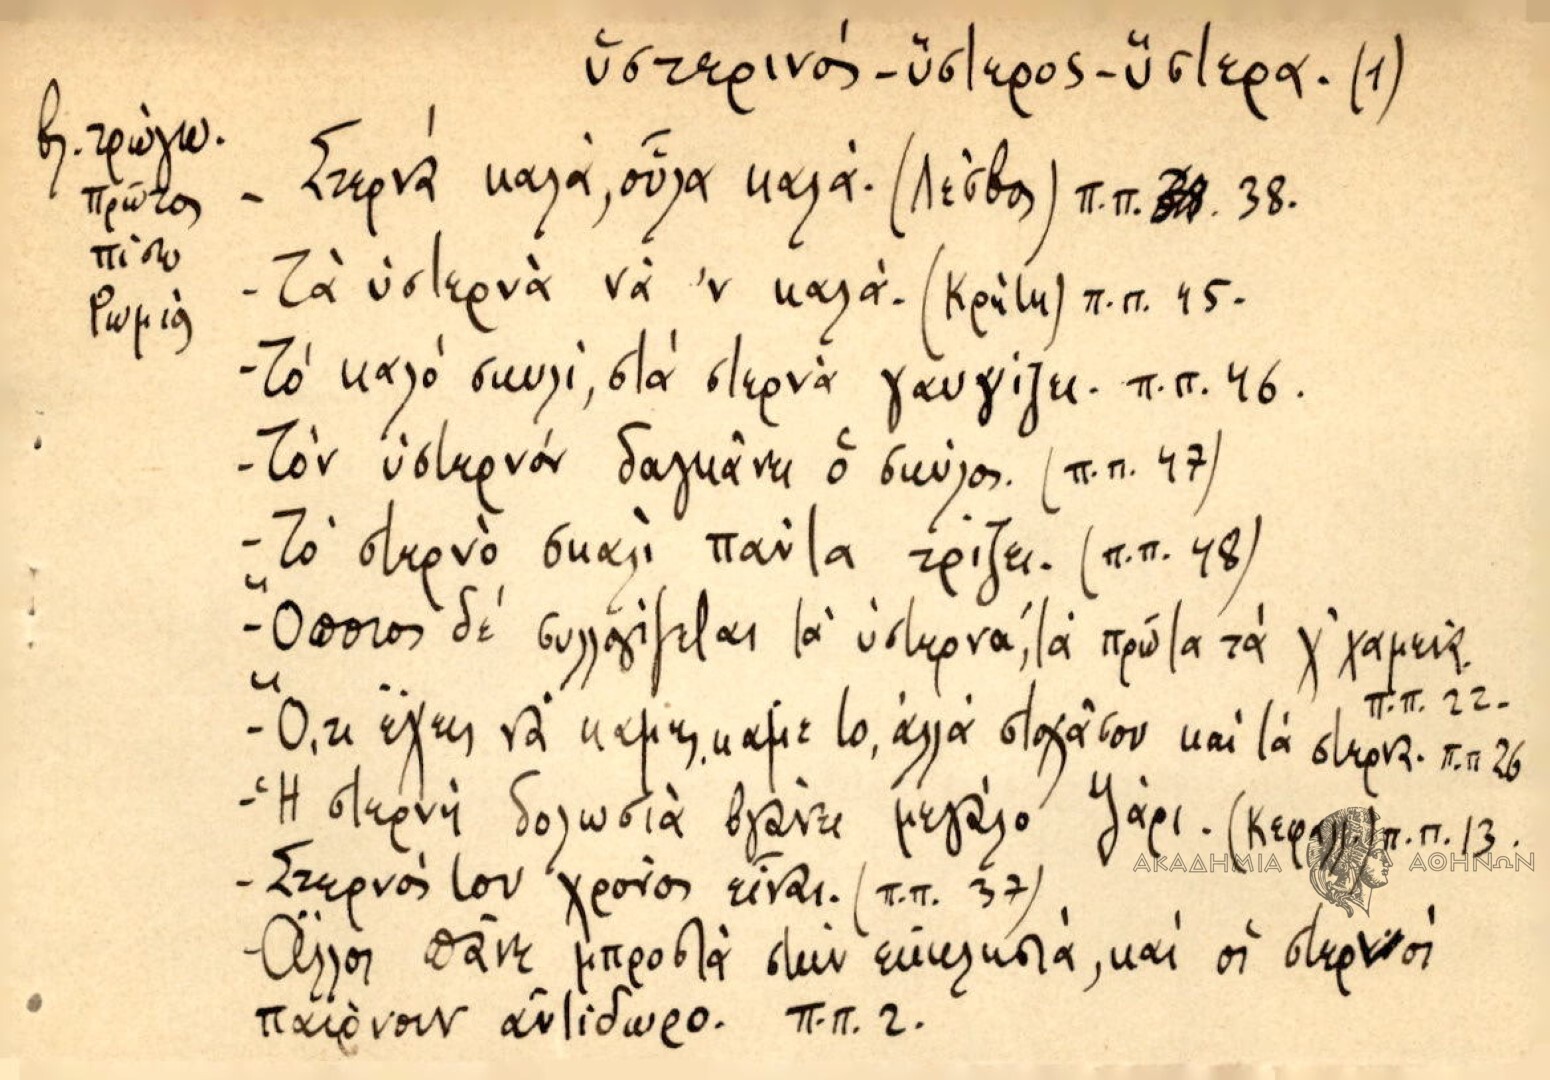 ὑστερινός - ὕστερος - ὕστερα. (1)
βλ. τρώγω.
πρῶτος
πίσω
Ρωμιὸς
- Στερνὰ καλά, οὖλα καλά. (Λέσβος) π.π. 38.
- Τὰ ὑστερνὰ νὰ 'ν καλά. (Κρήτη) π.π. 45.
- Τὸ καλό σκυλί, στά στερνὰ γαυγίζει. π.π. 46.
- Τὸν ὑστερνόν δαγκάνει ὁ σκύλος. (π.π. 47)
- Τὸ στερνὸ σκαλὶ πάντα τρίζει. (π.π. 48)
- Ὅποιος δὲ συλλογίζεται τὰ ὑστερνά, τὰ πρῶτα τά χ' χαμένα.
π.π. 22.
- Ὅ,τι ἔχεις νὰ κάμεις, κάμε το, ἀλλὰ στοχάσου καὶ τὰ στερνα. π.π 26
- Ἡ στερνὴ δολωσιὰ βγάνει μεγάλο ψάρι. (Κεφαλλ.) π.π. 13.
- Στερνός του χρόνος εἶναι. (π.π. 37)
- Ἄλλοι πᾶνε μπροστὰ στὴν ἐκκλησιά, καὶ οἱ στερνοί
παίρνουν ἀντίδωρο. π.π. 2.
ΑΚΑΔΗΜΙΑ ΑΘΗΝΩΝ